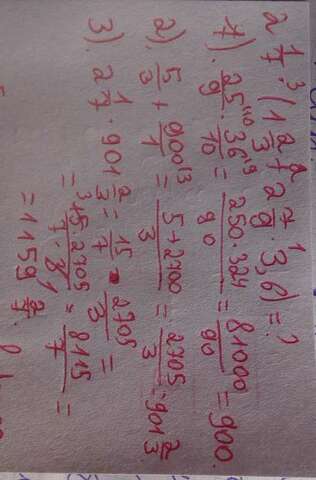 2 1/7 · (1 2/3 + 2 7/9 · 3,6) = ?
1). 25/9 · 36/10 = 250·324/90 = 81000/90 = 900.
2). 5/3 + 900/1 = 5+2700/3 = 2705/3 = 901 2/3
3). 2 1/7 · 901 2/3 = 15/7 · 2705/3 =
= 15·2705/7·3 = 8115/7 =
= 1159 2/7.